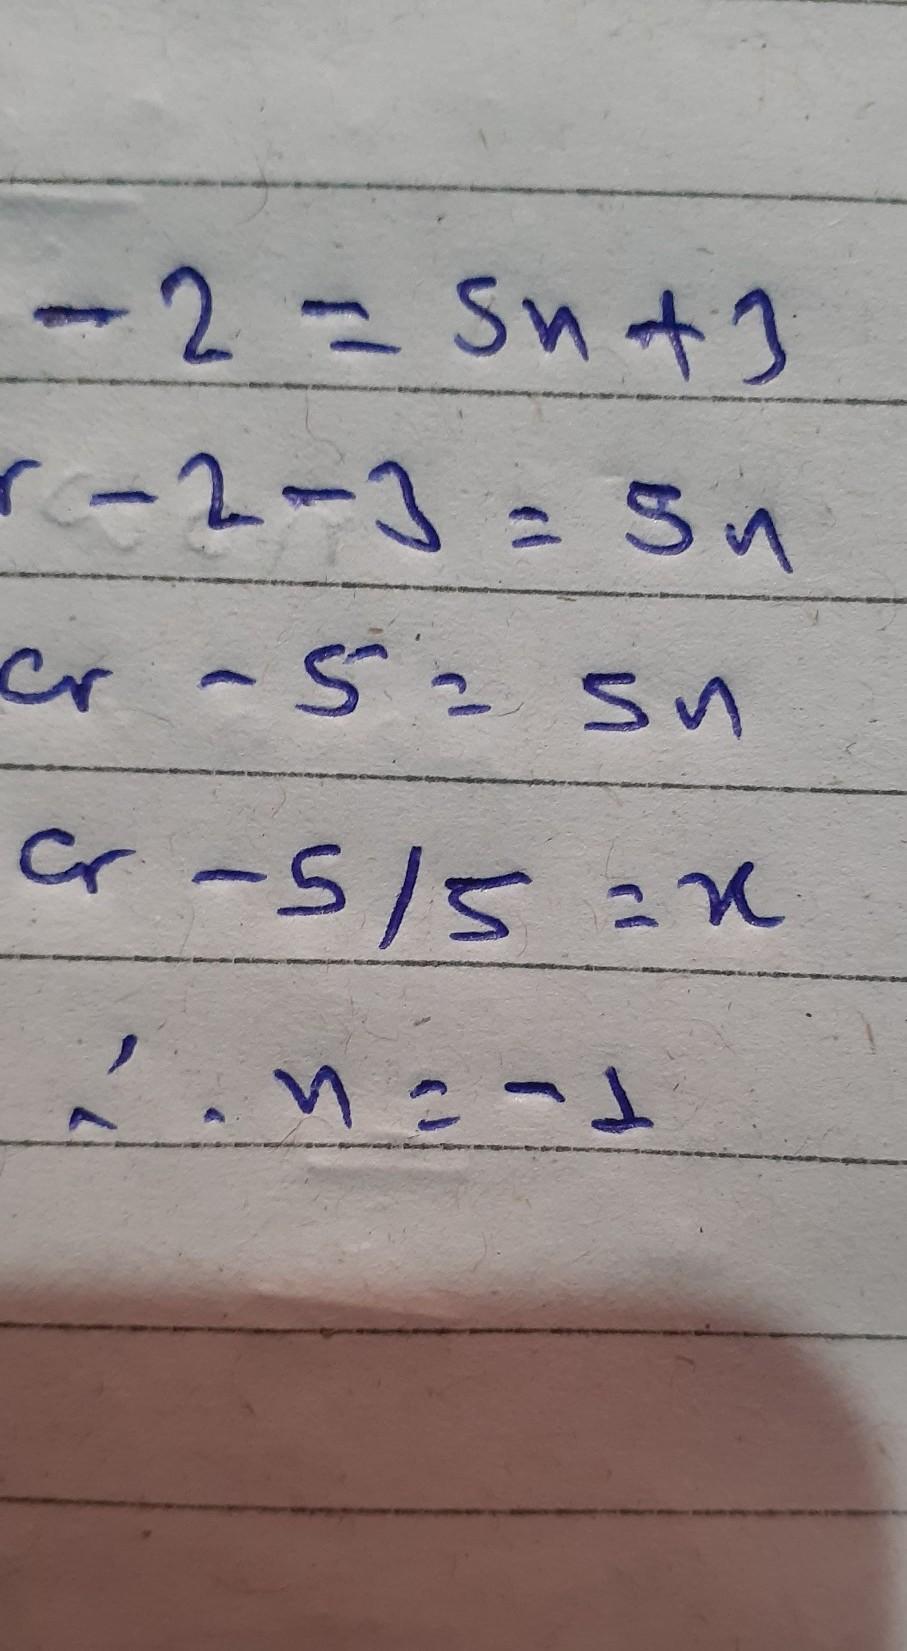 -2 = 5x + 3
r -2-3 = 5x
or -5 = 5x
or -5/5 = x
∴ x = -1